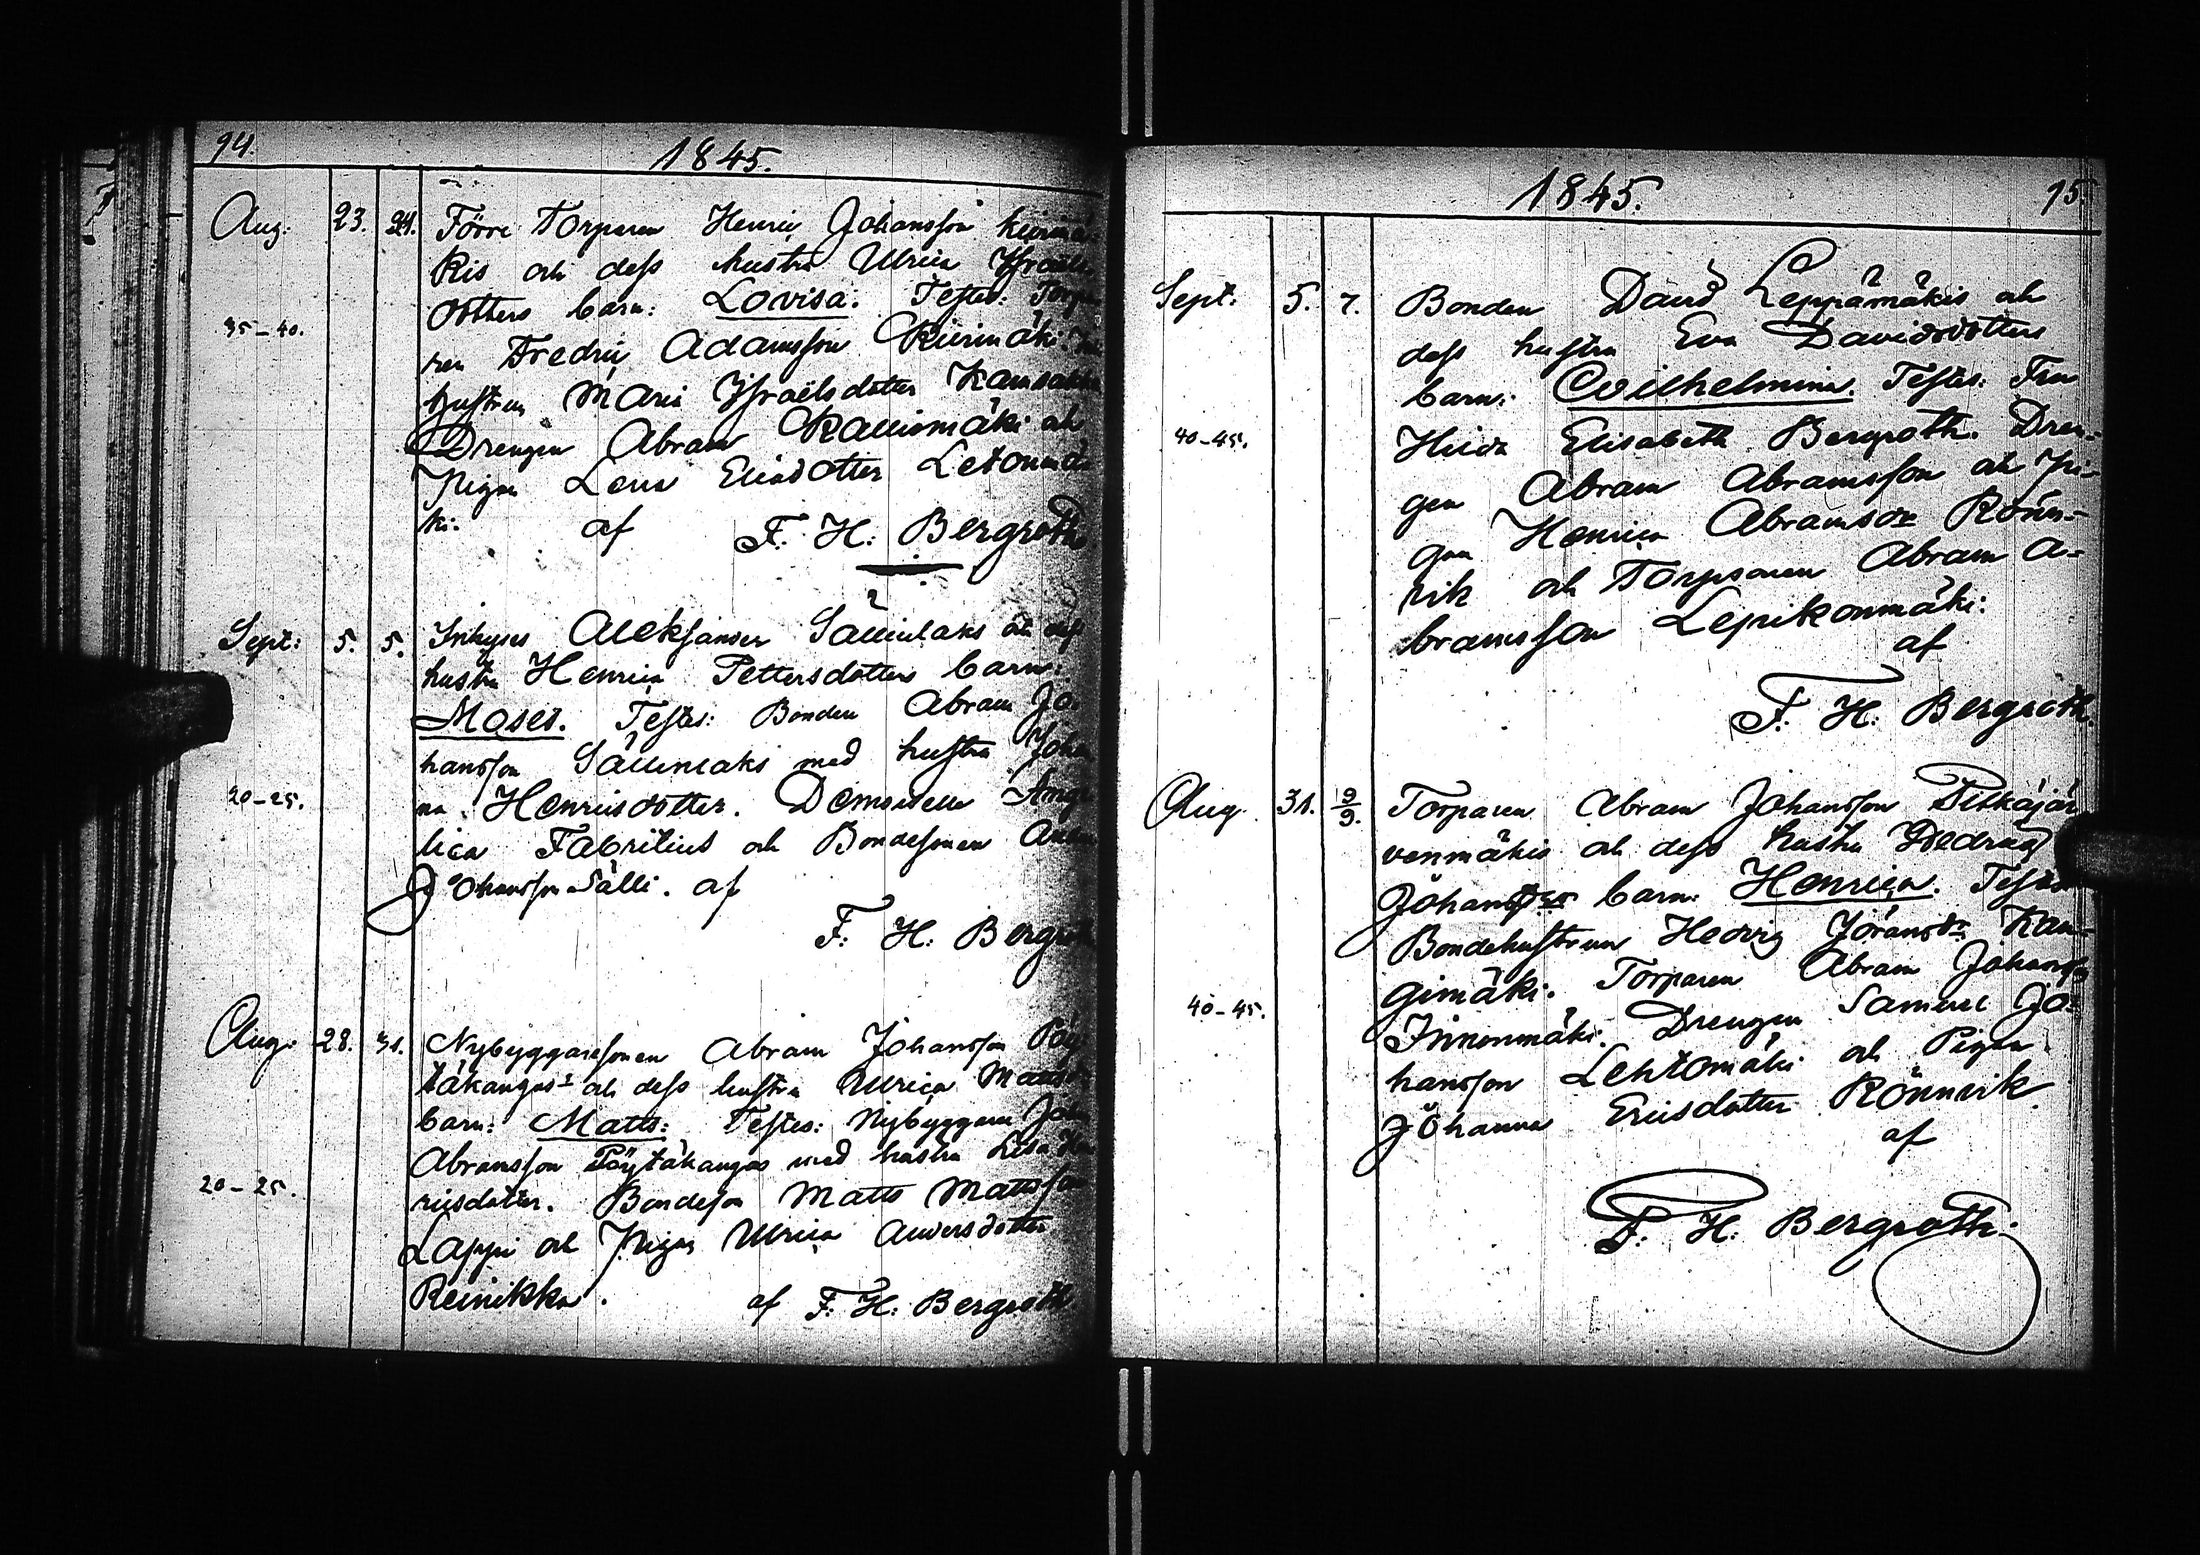 94.
1845.
Aug. 23. 24. Förre Torparen Henric Johansson Kiirimä-
kis och dess hustru Ulrica Israels
dotters barn: Lovisa. Testes: Torpa
35-40.
ren Fredric Adamsson Kiirimäki.
hustrun Maria Israëlsdotter
Drengen Abram Kalliomäki och
Pigan Lena Eliasdotter Letonmä
ki. af F. H. Bergroth
Sept: 5. 5. Inhyses Aleksander Sällinlaks och dess
hustru Henrica Pettersdotters barn:
Moses. Testes: Bonden Abram Jo
hansson Sällinlaks med hustru Joha
20-25.
na Henricsdotter. Demoiselle Ange
lica Fabritius och Bondesonen
Johansson Sälli. af
F. H. Bergroth
Aug. 28. 31. Nybyggaresonen Abram Johansson Pöy
täkangas och dess hustru Ulrica
barn: Matts: Testes: Nybyggare Joh
Abramsson Pöytäkangas med hustru Lisa Hen
20-25.
ricsdotter. Bondeson Matts Mattsson
Lappi och Pigan Ulrica Andersdotter
Reinikka. af F. H. Bergroth
1845. 95.
Sept. 5. 7. Bonden David Leppämäkis och
dess hustru Eva Davidsdotters
barn: Wilhelmina. Testes: Fru
40-45.
Hedda Elisabeth Bergroth. Dren-
gen Abram Abramsson och Pi-
gan Henrica Abramsdr Rönn-
vik och Torparen Abram A-
bramsson Lepikonmäki:
af
F. H. Bergroth.
Aug. 31. 9/9. Torparen Abram Johansson Pitkäjär
venmäkis och dess hustru
Johansdrs barn: Henrica. Testes
Bondehustrun Hedvig Jöransdr Kan-
gimäki. Torparen Abram Johansson
40-45.
Innonmäki. Drengen Samuel Jo-
hansson Lehtomäki och Pigan
Johanna Ericsdotter Rönnvik.
af
F. H. Bergroth.